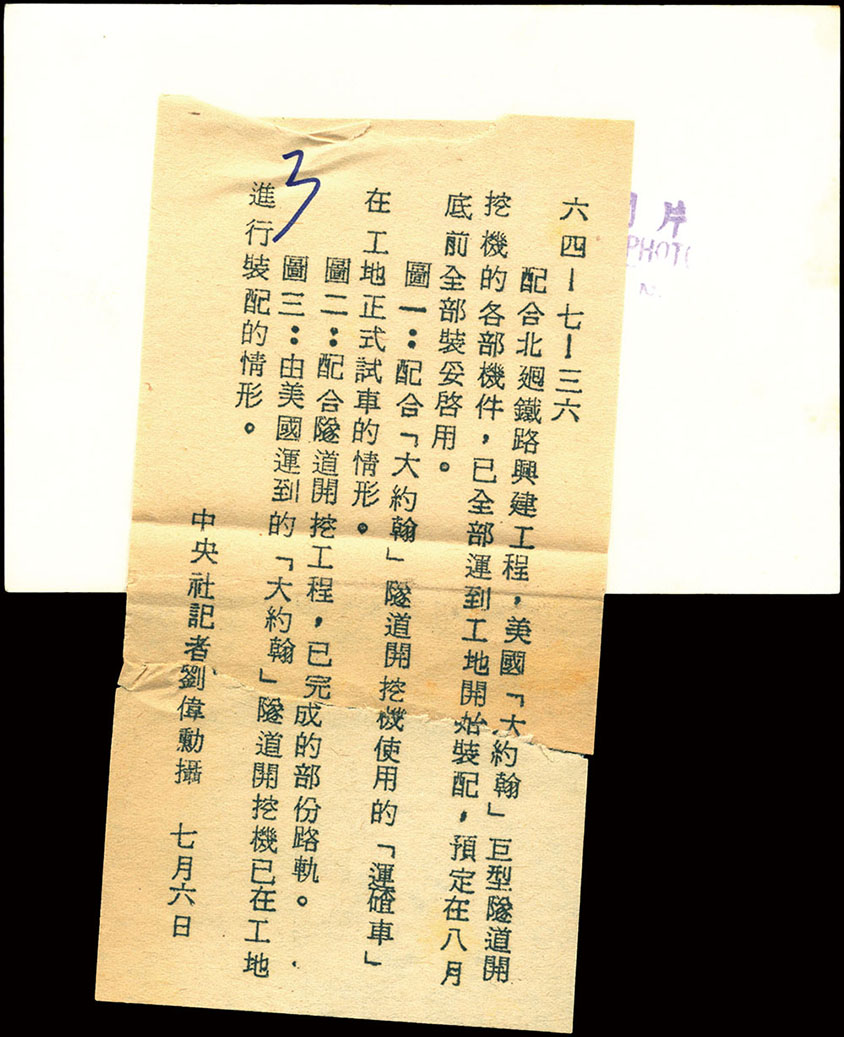 六四-七-三六
配合北迴鐵路興建工程，美國「大約翰」巨型隧道開
挖機的各部機件，已全部運到工地開始裝配，預定在八月
底前全部裝妥啓用。
圖一：配合「大約翰」隧道開挖機使用的「運碴車」
在工地正式試車的情形。
圖二：配合隧道開挖工程，已完成的部份路軌。
圖三：由美國運到的「大約翰」隧道開挖機已在工地
進行裝配的情形。
中央社記者劉偉勳攝 七月六日
3
片
PHOTO